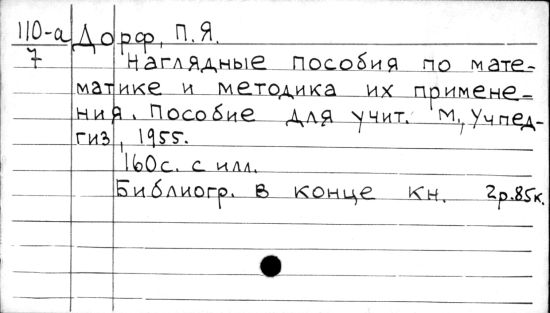 110-а Дорф, П.Я.
7 Наглядные пособия по мате-
матике и методика их примене-
ния. Пособие для учит. М., Учпед-
гиз, 1955.
160с. с илл.
Библиогр. в конце кн. 2р.85к.